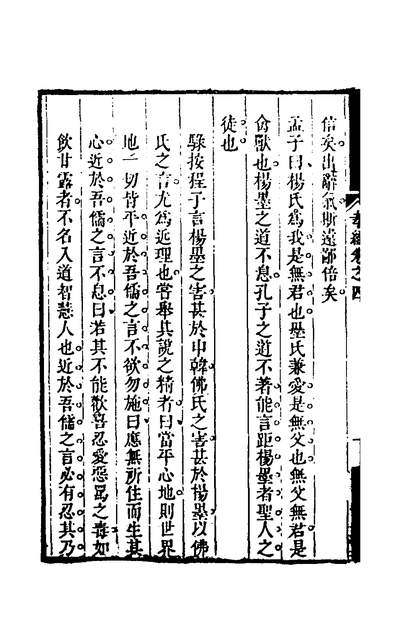 信矣出辭氣斯遠鄙倍矣
孟子曰楊氏爲我是無君也墨氏兼愛是無父也無父無君是
禽獸也楊墨之道不息孔子之道不著能言距楊墨者聖人之
徒也
騄按程子言楊墨之害甚於申韓佛氏之害甚於楊墨以佛
氏之言尤爲近理也嘗舉其說之精者曰當平心地則世界
地一切皆平近於吾儒之言不欲勿施曰應無所住而生其
心近於吾儒之言不息曰若其不能歡喜忍受惡罵之毒如
飲甘露者不名入道智慧人也近於吾儒之言必有忍其乃
卷之四